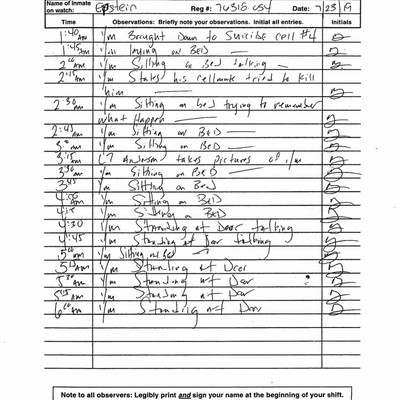 Name of inmate on watch: Epstein Reg #: 76318-054 Date: 7/23/19
Time Observations: Briefly note your observations. Initial all entries. Initials
1:40 am i/m Brought Down to Suicide cell #4
1:45 am i/m laying on BED
2:00 am i/m Sitting on Bed talking
2:15 am i/m States his cellmate tried to kill
him
2:30 am i/m Sitting on bed trying to remember
what happen
2:45 am i/m Sitting on BED
i/m Sitting on BED
3:15 am LT Anderson takes pictures of i/m
3:30 am i/m Sitting on BED
3:45 i/m Sitting on Bed
4:00 am i/m Sitting on BED
4:15 i/m Sitting on BED
4:30 i/m Standing at Door talking
4:45 i/m Standing at Door talking
5:00 am i/m Sitting on Bed
5:15 am i/m Standing at Door
5:30 am i/m Standing at Door
am i/m Standing at Door
6:00 am i/m Standing at Door
Note to all observers: Legibly print and sign your name at the beginning of your shift.